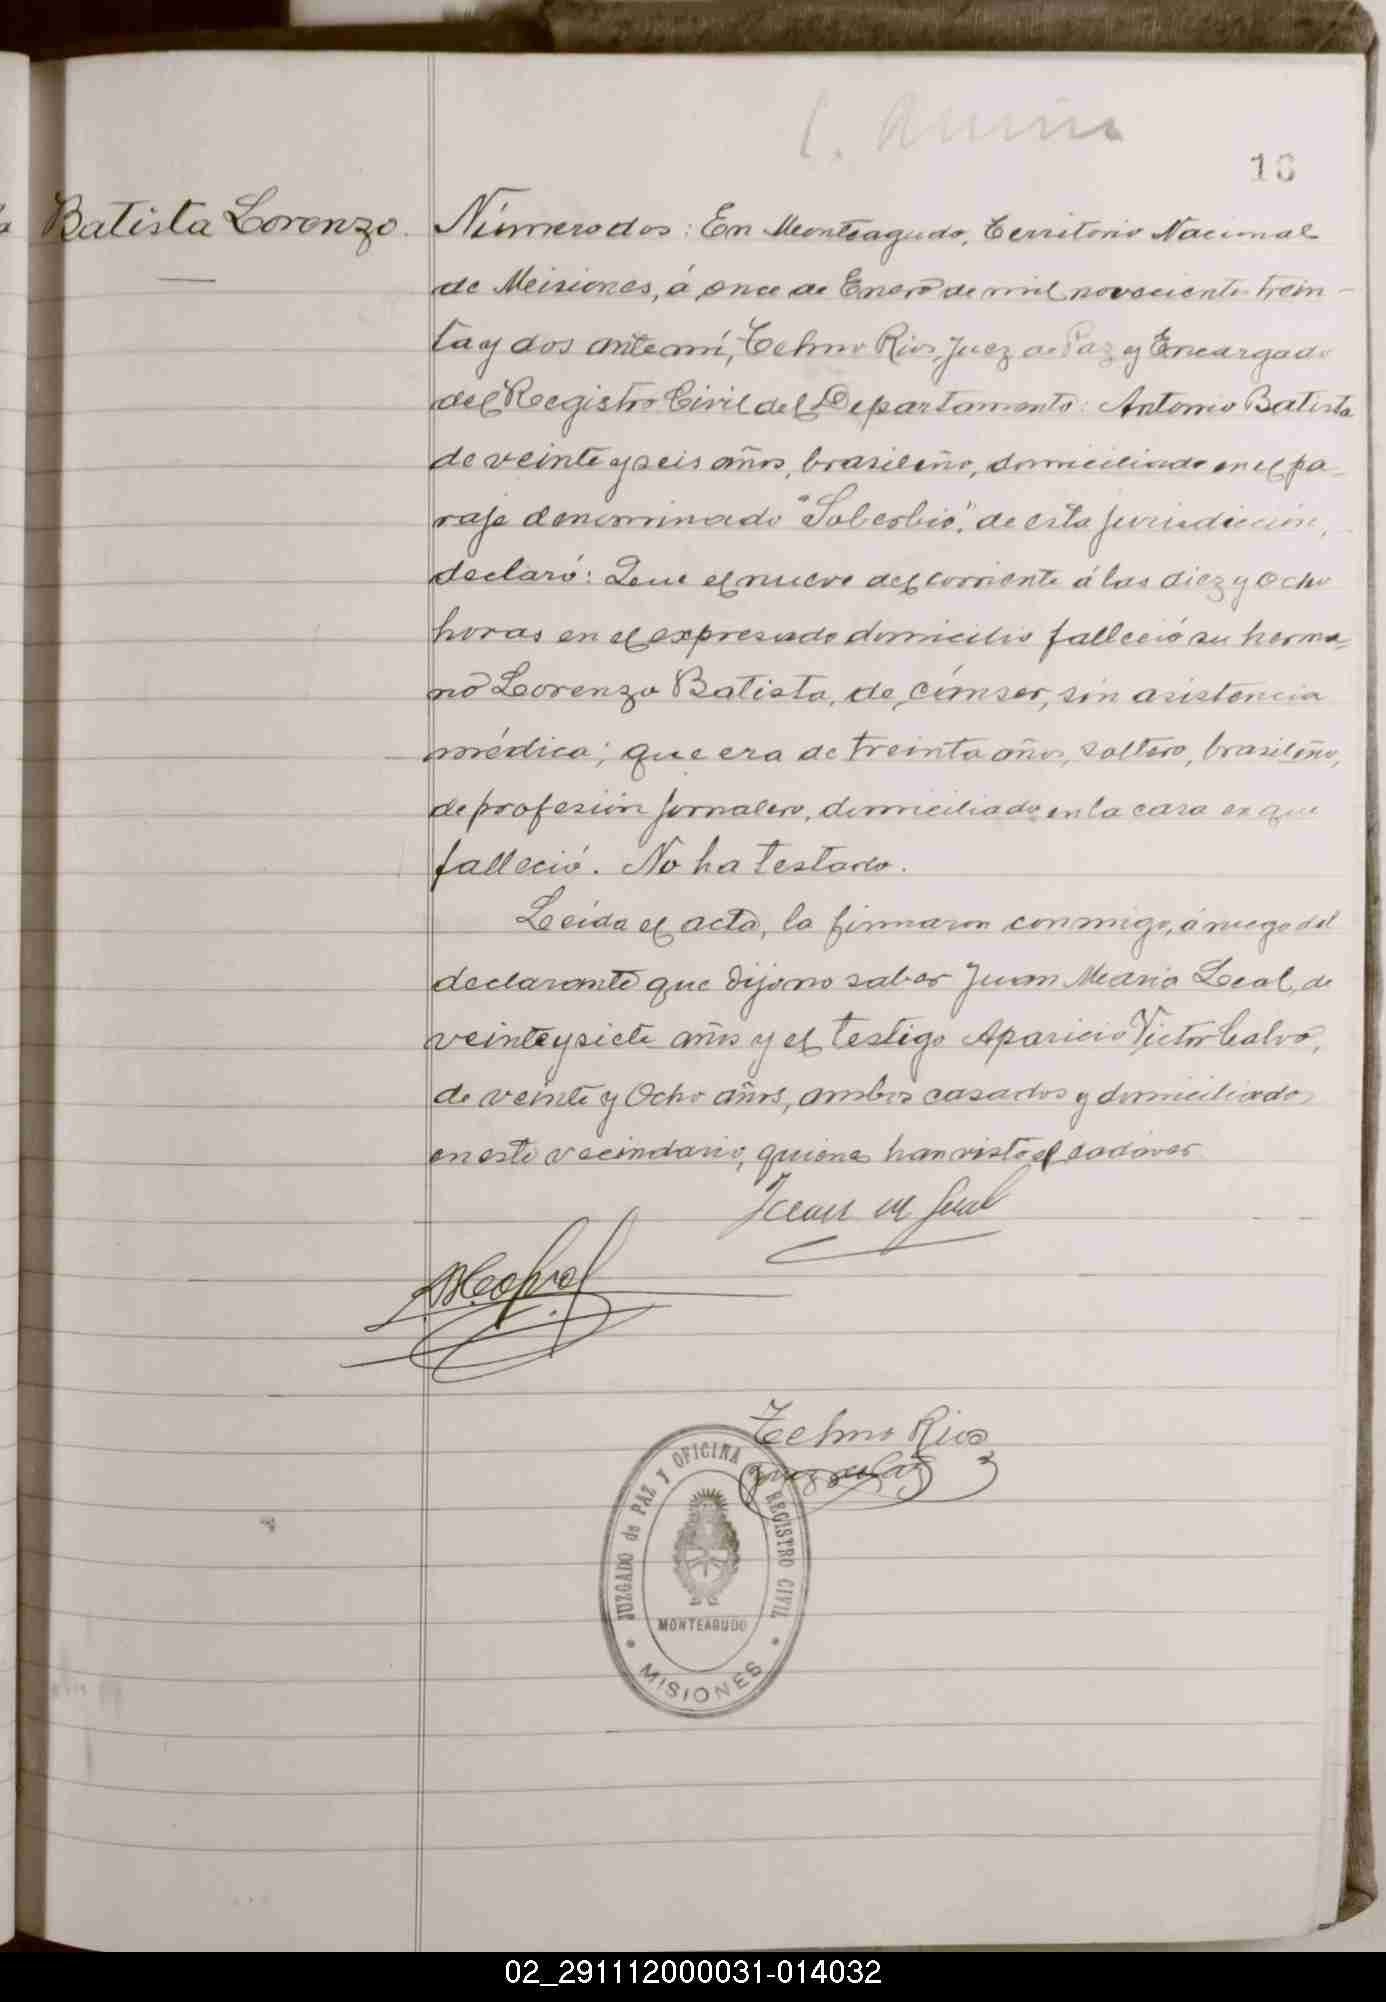 18
Batista Lorenzo.
Número dos: En Monteagudo, Territorio Nacional
de Misiones, á once de Enero de mil noveciento trein-
ta y dos ante mí, Telmo Rios, Juez de Paz y Encargado
del Registro Civil del Departamento: Antonio Batista
de veinte y seis años, brasileño, domiciliado en el pa-
raje denominado "Soberbio", de esta jurisdicción,
declaró: Que el nueve del corriente á las diez y ocho
horas en el expresado domicilio falleció su herma-
no Lorenzo Batista, de cánser, sin asistencia
médica; que era de treinta años, soltero, brasileño,
de profesión jornalero, domiciliado en la casa en que
falleció. No ha testado.
Leída el acta, la firmaron conmigo, á ruego del
declarante que dijo no saber Juan Maria Leal, de
veinte y siete años y el testigo Aparicio Victor Calvo,
de veinte y ocho años, ambos casados y domiciliados
en este vecindario, quienes han visto el cadáver
Juan M Leal
Telmo Rios
Juez de Paz
JUZGADO de PAZ Y OFICINA REGISTRO CIVIL
MONTEAGUDO
MISIONES
02_291112000031-014032